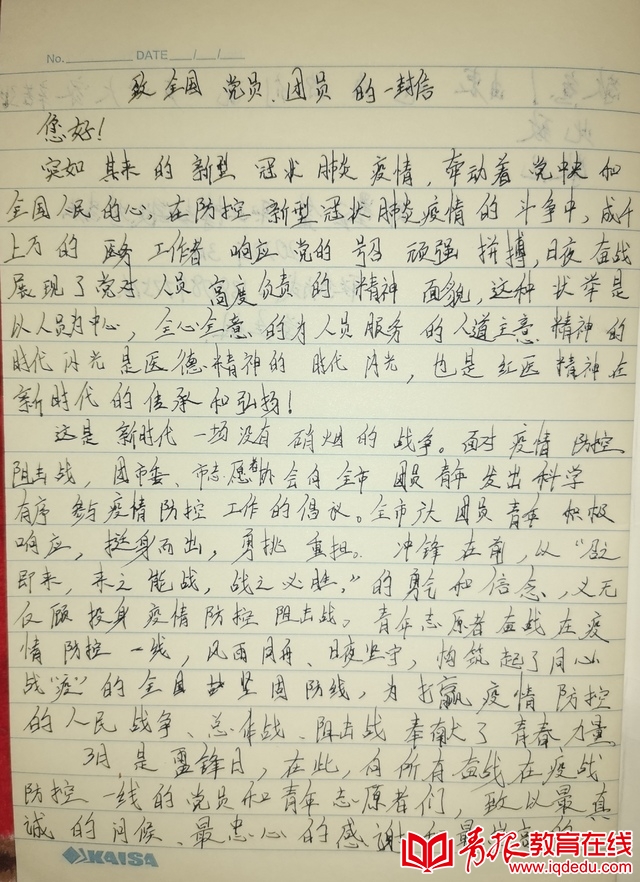 No. DATE / /
致全国党员、团员的一封信
您好!
突如其来的新型冠状肺炎疫情,牵动着党中央和
全国人民的心,在防控新型冠状肺炎疫情的斗争中,成千
上万的医务工作者响应党的号召顽强拼搏,日夜奋战
展现了党对人员高度负责的精神面貌,这种状举是
以人员为中心,全心全意的为人员服务的人道主意精神的
时代闪光是医德精神的时代闪光,也是红医精神在
新时代的传承和弘扬!
这是新时代一场没有硝烟的战争。面对疫情防控
阻击战,团市委、市志愿者协会向全市团员青年发出科学
有序参与疫情防控工作的倡议。全市广大团员青年积极
响应,挺身而出,勇挑重担。冲锋在前,以“召之
即来,来之能战,战之必胜,”的勇气和信念,义无
反顾投身疫情防控阻击战。青年志愿者奋战在疫
情防控一线,风雨同舟、日夜坚守,构筑起了同心
战“疫”的全国坚固防线,为打赢疫情防控
的人民战争、总体战、阻击战奉献了青春力量
3月,是雷锋日,在此,向所有奋战在疫战
防控一线的党员和青年志愿者们,致以最真
诚的问候、最忠心的感谢
KAISA
青报教育在线
www.iqdedu.com